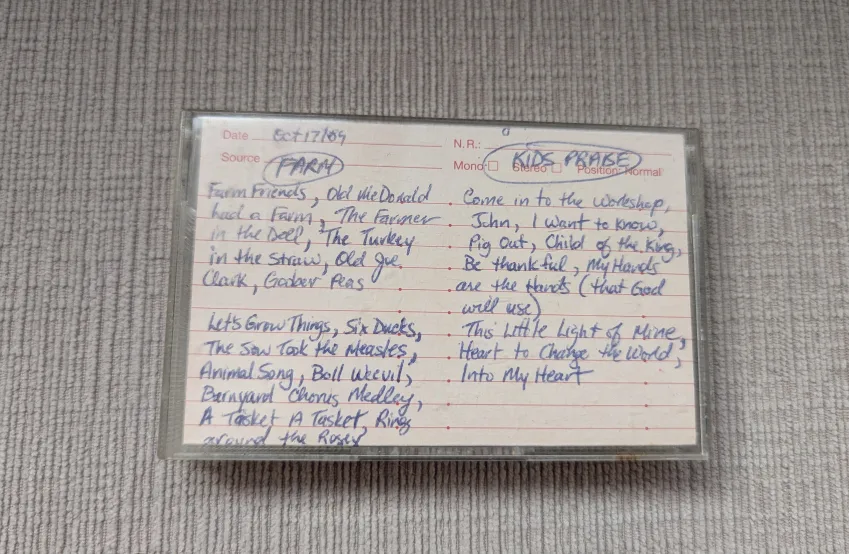 Date Oct 17/09
Source FARM
Farm Friends, Old McDonald
had a Farm, The Farmer
in the Dell, The Turkey
in the Straw, Old Joe
Clark, Goober Peas
Let's Grow Things, Six Ducks,
The Sow Took the Measles,
Animal Song, Boll Weevil,
Barnyard Chorus Medley,
A Tasket A Tasket, Ring
around the Rosey
N.R.:
KIDS PRAISE
Mono: Stereo Position: Normal
Come in to the Workshop,
John, I Want to Know,
Pig Out, Child of the King,
Be thankful, My Hands
are the Hands (that God
will use)
This Little Light of Mine,
Heart to Change the World,
Into My Heart